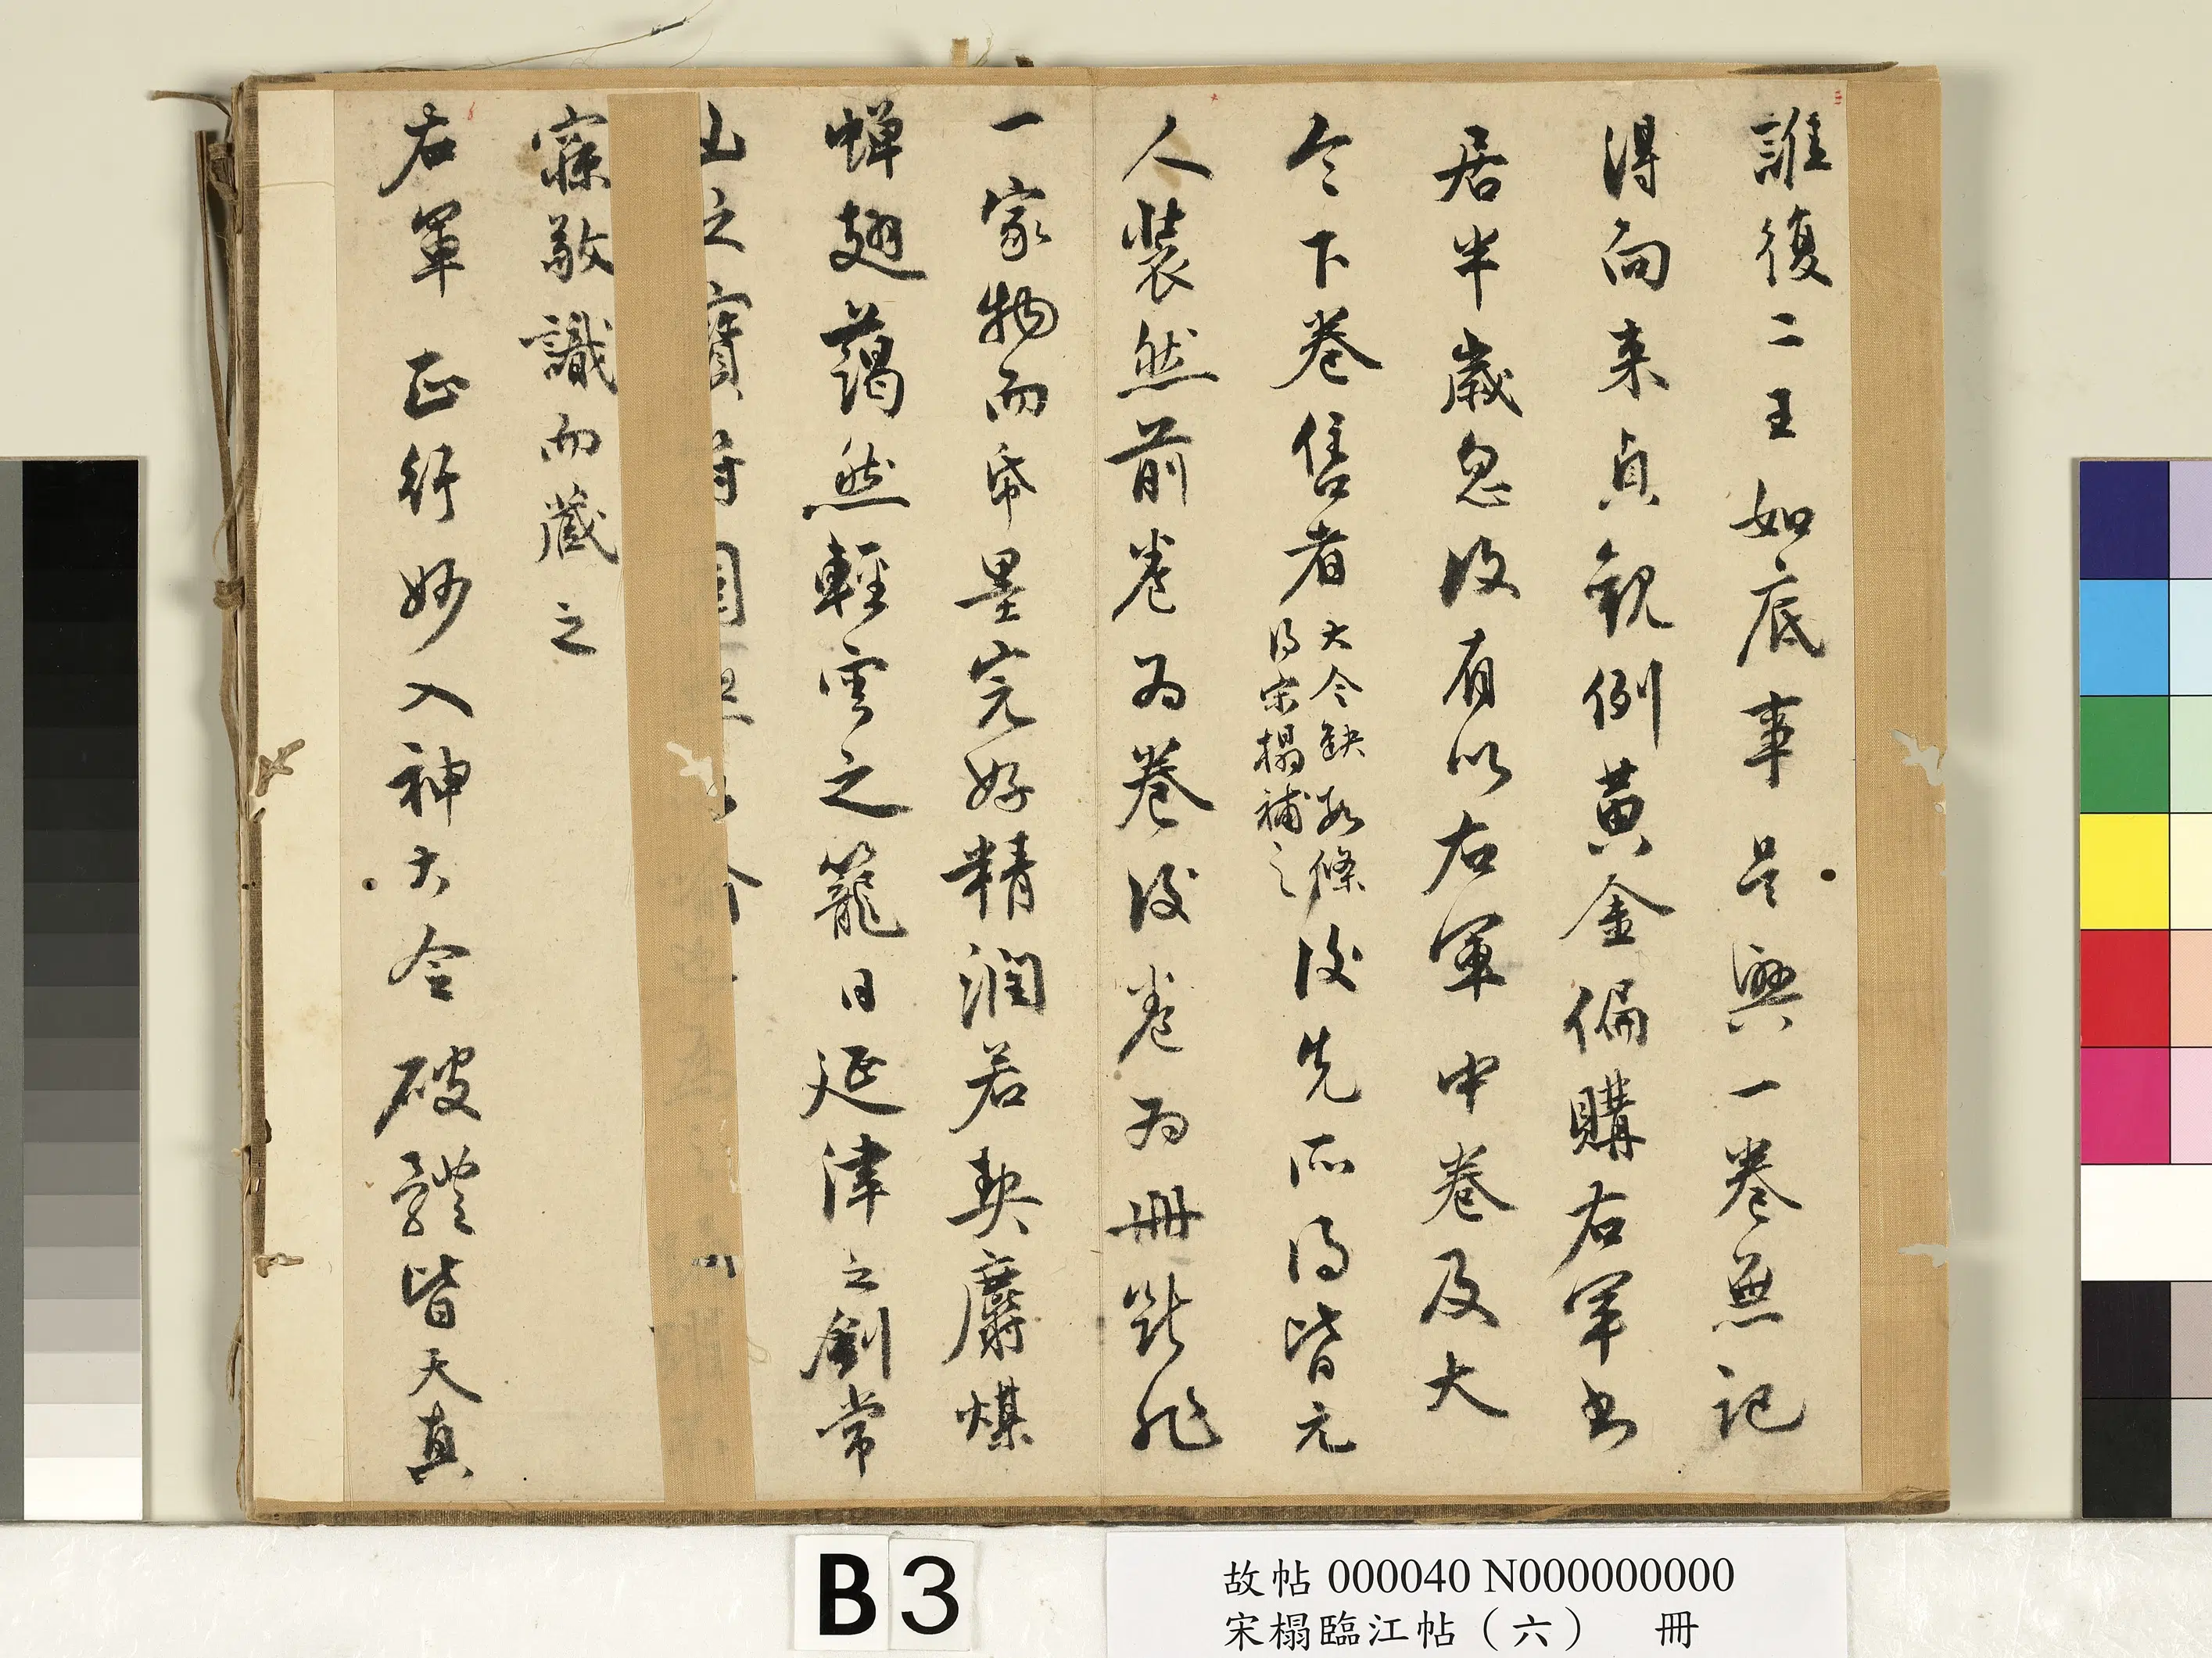 誰復二王如底事是興一卷無記
得向来貞觀例黃金偏購右軍書
居半歲忽復有以右軍中卷及大
令下卷售者大令缺数條
得宋榻補之
後先所得皆元
人装然前卷為卷後卷為冊㫁非
一家物而帋墨完好精潤若
麝煤
蝉翅藹然輕雲之籠日延津之劍常
山之寶
寐敬識而藏之
右軍正行妙入神大令破體皆天真
B3
故帖 000040 N000000000
宋榻臨江帖（六） 冊